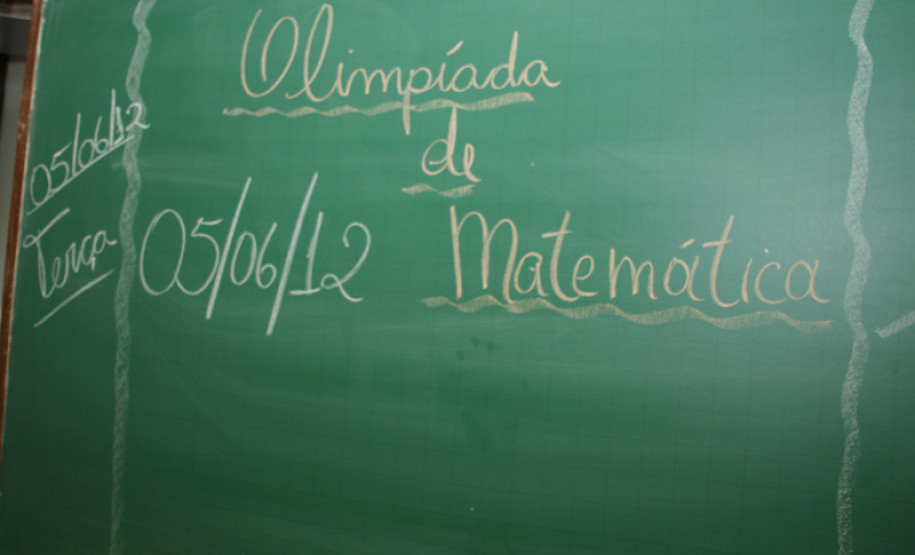 05/06/12
Terça
Olimpíada
de
05/06/12
Matemática